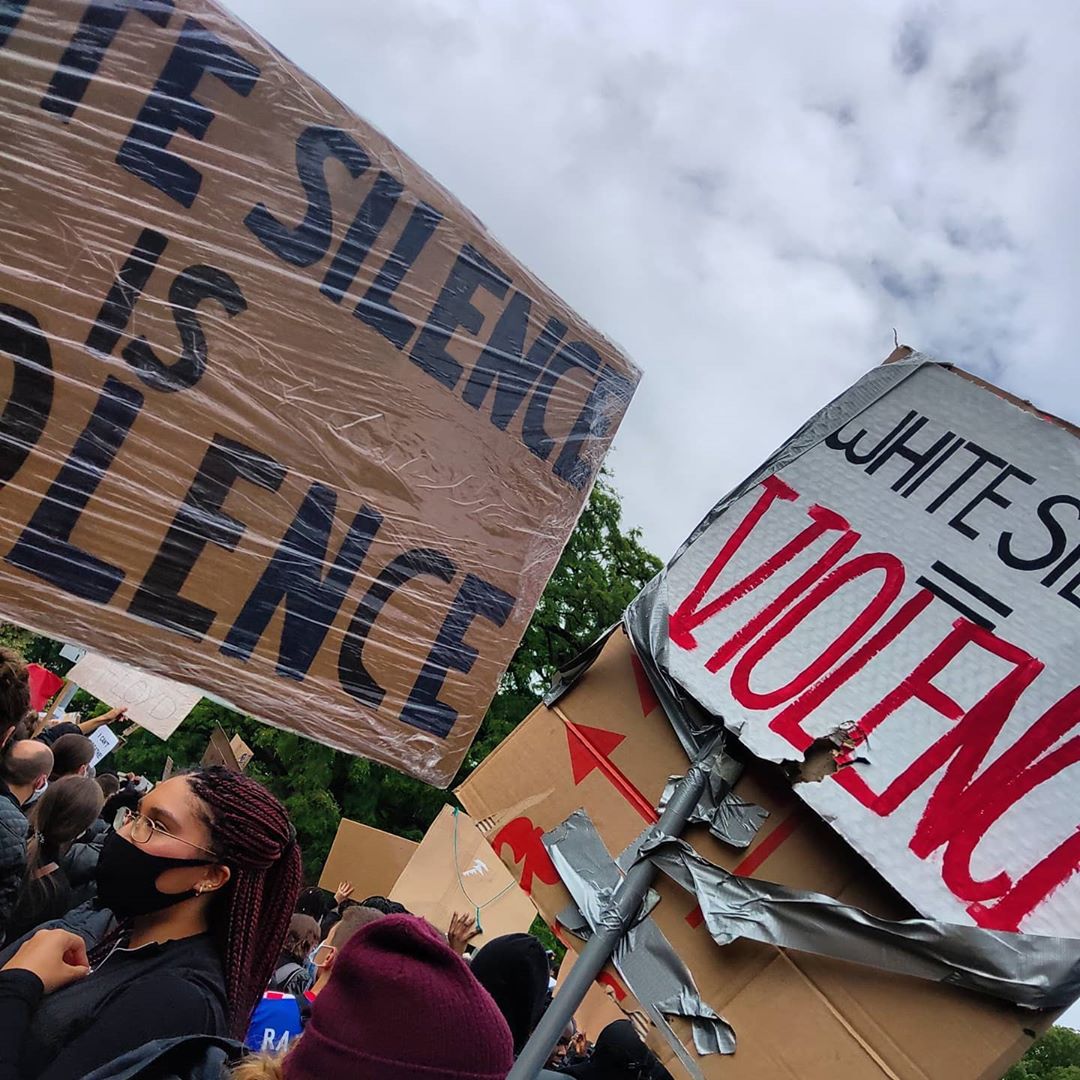 TE SILENCE
IS
OLENCE
WHITE SILE
=
VIOLENC
FLOYD
I CAN'T
RA